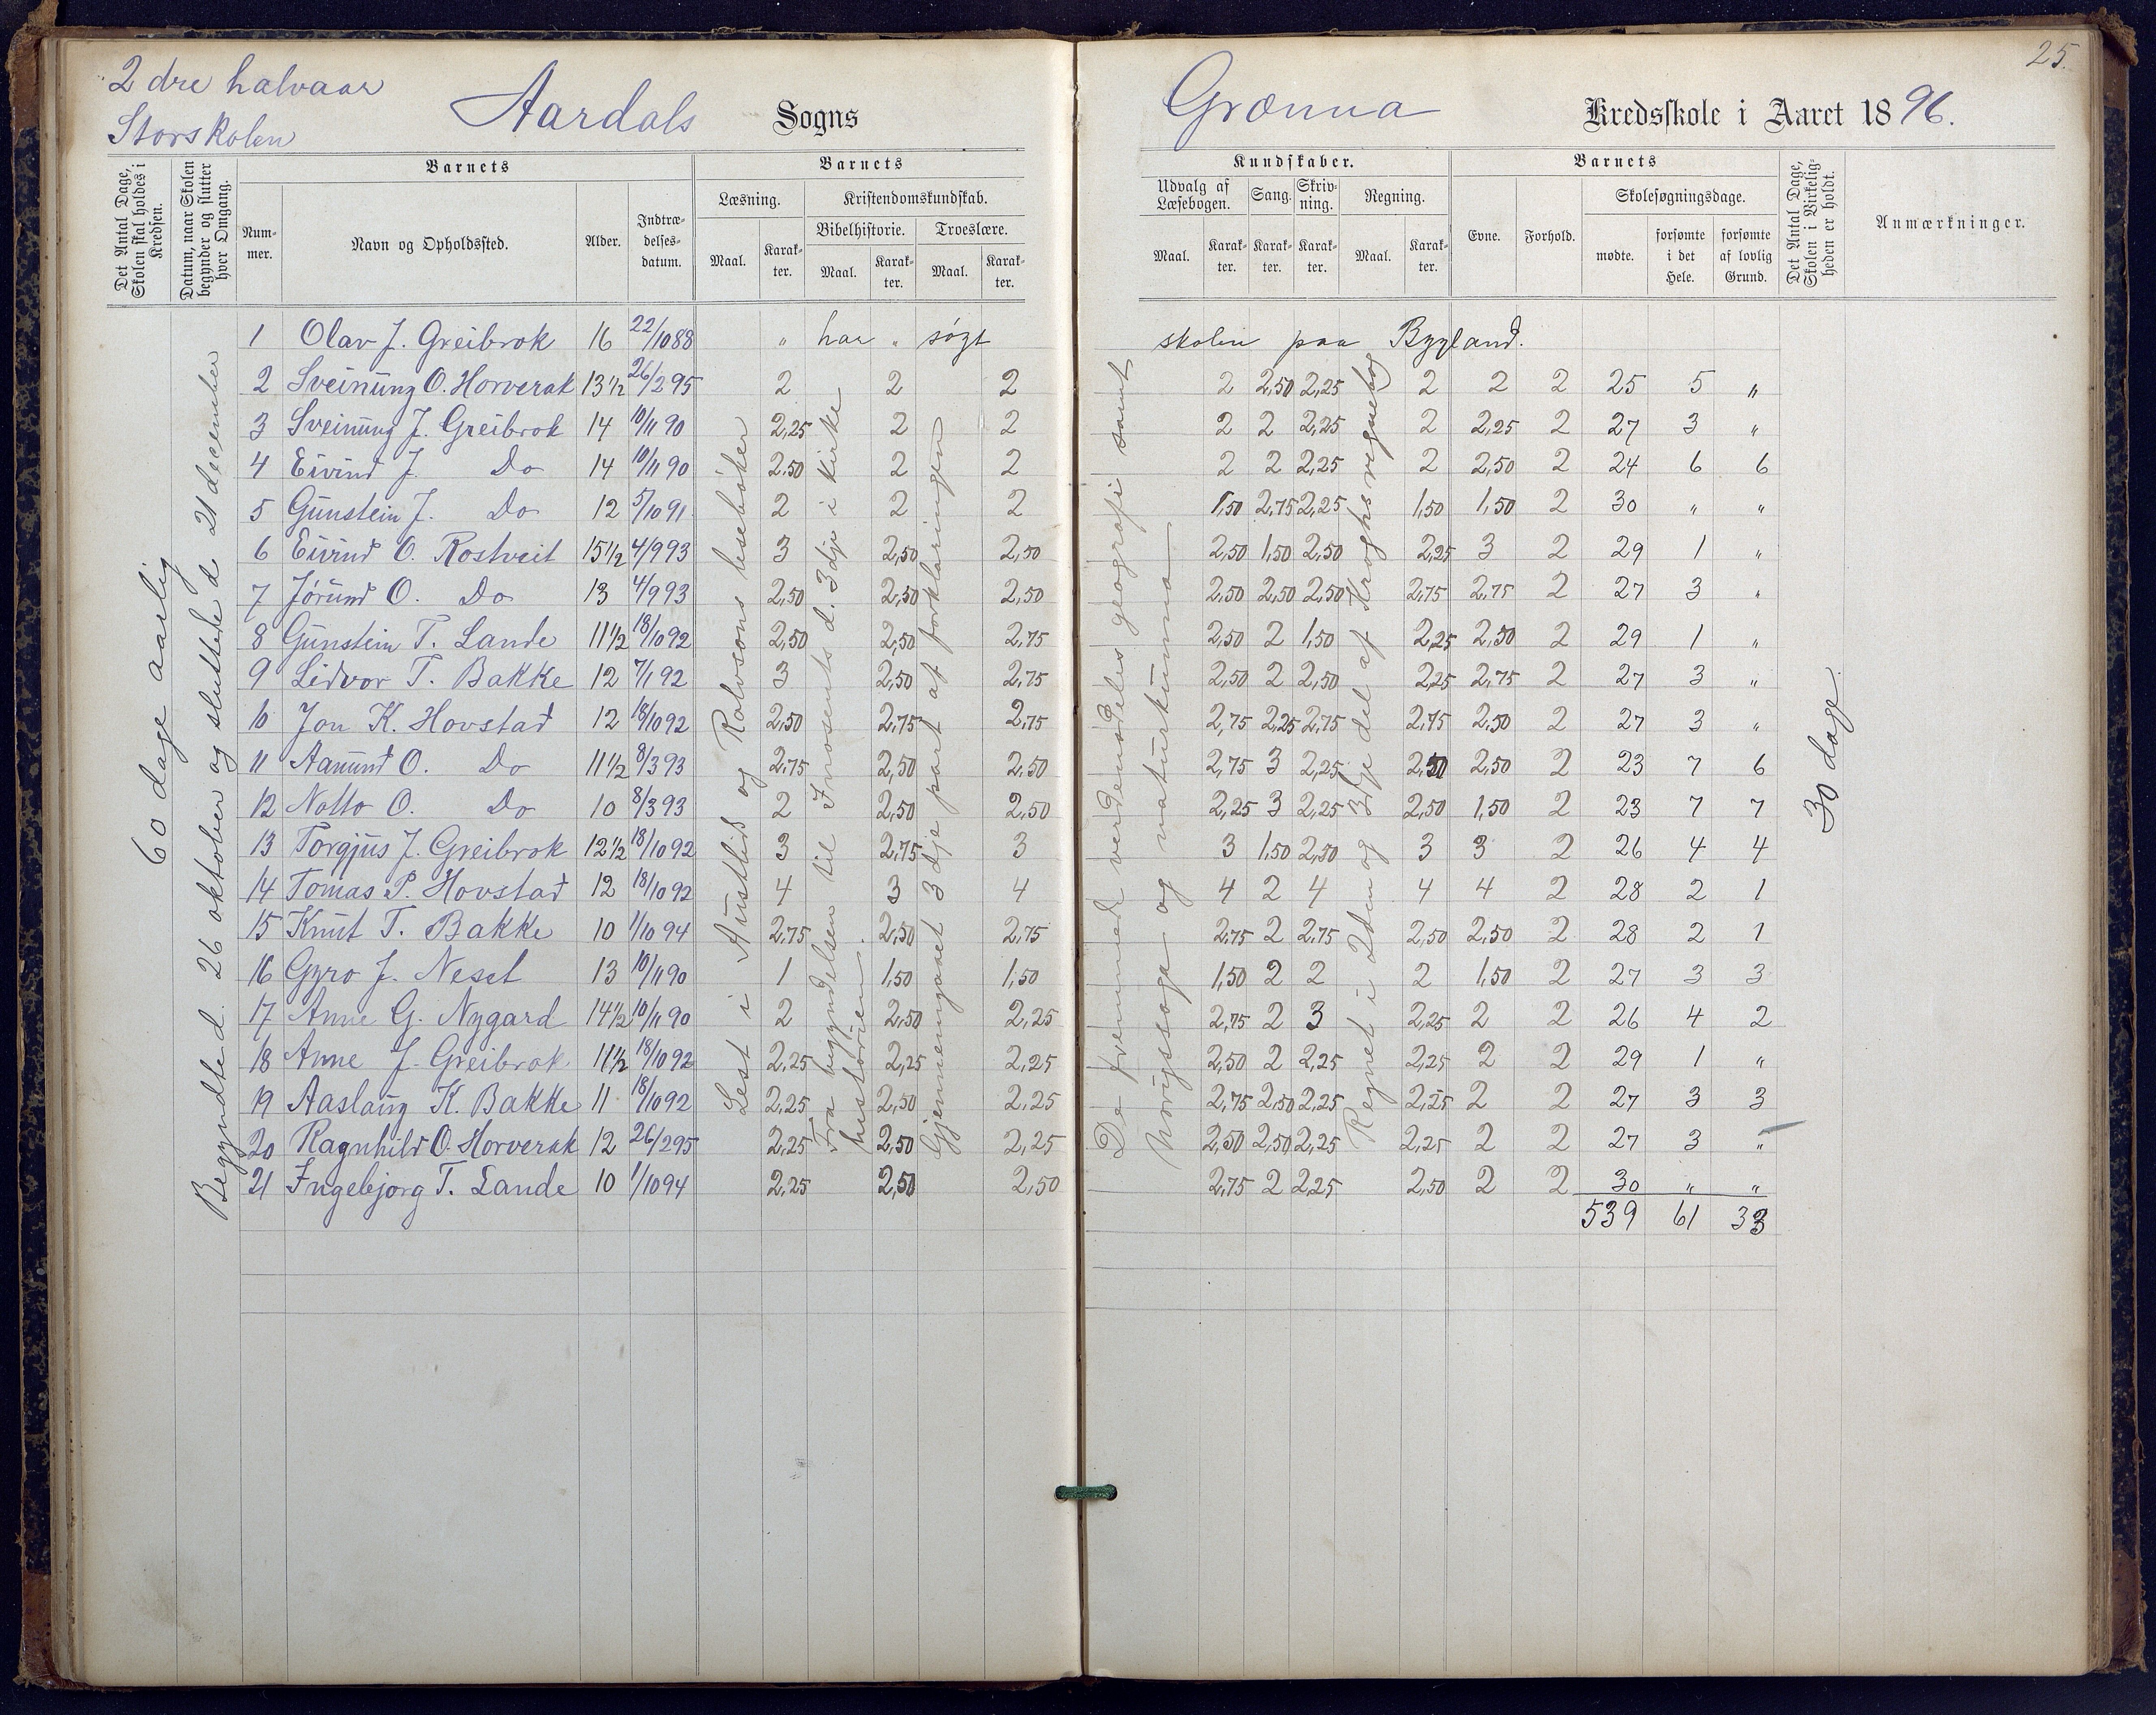 25.
2 dre halvaar
Storskolen
Aardals Sogns
Grænna Kredsskole i Aaret 1896.
Det Antal Dage, Skolen skal holdes i Kredsen.
Datum, naar Skolen begynder og slutter hver Omgang.
Barnets
Nummer.
Navn og Opholdssted.
Alder.
Indtrædelsesdatum.
Barnets
Læsning.
Maal. Karakter.
Kristendomskundskab.
Bibelhistorie.
Maal. Karakter.
Troeslære.
Maal. Karakter.
Kundskaber.
Udvalg af Læsebogen.
Maal. Karakter.
Sang.
Karakter.
Skrivning.
Karakter.
Regning.
Maal. Karakter.
Barnets
Evne. Forhold.
Skolesøgningsdage.
mødte. forsømte i det Hele. forsømte af lovlig Grund.
Det Antal Dage, Skolen i Virkeligheden er holdt.
Anmærkninger.
60 dage aarlig
Begyndte d. 26 oktober og sluttede d 21 december
Lest i Austlid og Rolvsons lesebøker
Fra begyndelsen til Innosents d. 3dje i kirkehistorien.
Gjennemgaaet 3dje part af forklaringen
De fremmede verdensdeles geografi samt
Norigssoga og naturkunna
Regnet i 2den og 3dje del af Kroghs regnebog
30 dage.
1 Olav J. Greibrok 16 22/10 88 " har " søgt skolen paa Bygland.
2 Sveinung O. Horverak 13 1/2 26/2 95 2 2 2 2 2,50 2,25 2 2 2 25 5 "
3 Sveinung J. Greibrok 14 10/11 90 2,25 2 2 2 2 2,25 2 2,25 2 27 3 "
4 Eivind J. Do 14 10/11 90 2,50 2 2 2 2 2,25 2 2,50 2 24 6 6
5 Gunstein J. Do 12 5/10 91 2 2 2 1,50 2,75 2,25 1,50 1,50 2 30 " "
6 Eivind O. Rostveit 15 1/2 4/9 93 3 2,50 2,50 2,50 1,50 2,50 2,25 3 2 29 1 "
7 Jørund O. Do 13 4/9 93 2,50 2,50 2,50 2,50 2,50 2,50 2,75 2,75 2 27 3 "
8 Gunstein T. Lande 11 1/2 18/10 92 2,50 2,50 2,75 2,50 2 1,50 2,25 2,50 2 29 1 "
9 Lidvor T. Bakke 12 7/1 92 3 2,50 2,75 2,50 2 2,50 2,25 2,75 2 27 3 "
10 Jon K. Hovstad 12 18/10 92 2,50 2,75 2,75 2,75 2,25 2,75 2,75 2,50 2 27 3 "
11 Aanund O. Do 11 1/2 8/3 93 2,75 2,50 2,50 2,75 3 2,25 2,50 2,50 2 23 7 6
12 Notto O. Do 10 8/3 93 2 2,50 2,50 2,25 3 2,25 2,50 1,50 2 23 7 7
13 Torgjus J. Greibrok 12 1/2 18/10 92 3 2,75 3 3 1,50 2,50 3 3 2 26 4 4
14 Tomas P. Hovstad 12 18/10 92 4 3 4 4 2 4 4 4 2 28 2 1
15 Knut T. Bakke 10 1/10 94 2,75 2,50 2,75 2,75 2 2,75 2,50 2,50 2 28 2 1
16 Gyro J. Neset 13 10/11 90 1 1,50 1,50 1,50 2 2 2 1,50 2 27 3 3
17 Anne G. Nygard 14 1/2 10/11 90 2 2,50 2,25 2,75 2 3 2,25 2 2 26 4 2
18 Anne J. Greibrok 11 1/2 18/10 92 2,25 2,25 2,25 2,50 2 2,25 2,25 2 2 29 1 "
19 Aaslaug K. Bakke 11 18/10 92 2,25 2,50 2,25 2,75 2,50 2,25 2,25 2 2 27 3 3
20 Ragnhild O. Horverak 12 26/2 95 2,25 2,50 2,25 2,50 2,50 2,25 2,25 2 2 27 3 "
21 Ingebjorg T. Lande 10 1/10 94 2,25 2,50 2,50 2,75 2 2,25 2,50 2 2 30 " "
539 61 33